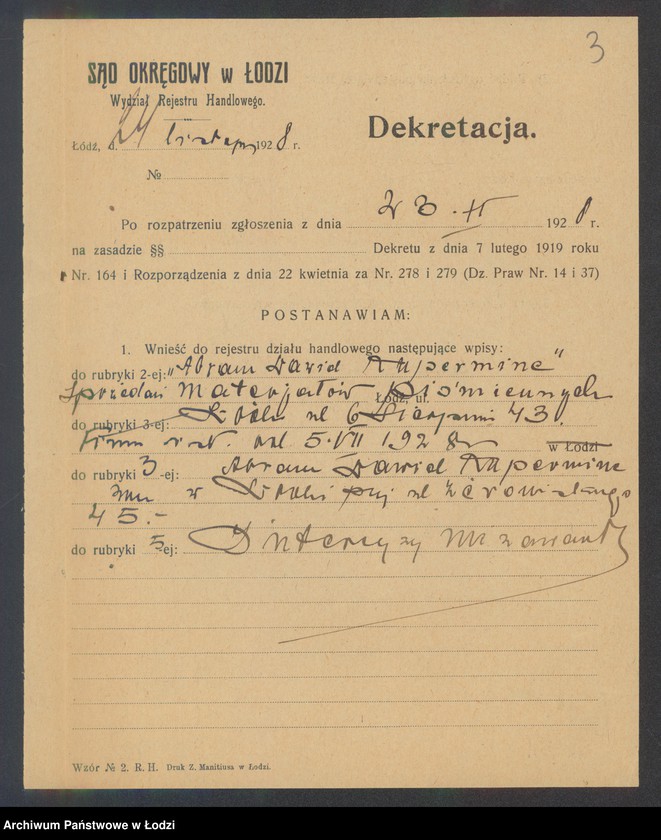 3
SĄD OKRĘGOWY w ŁODZI
Wydział Rejestru Handlowego.
Łódź, d. 24 listopada 1928 r.
Dekretacja.
№
Po rozpatrzeniu zgłoszenia z dnia 23.XI 1928 r.
na zasadzie §§ Dekretu z dnia 7 lutego 1919 roku
Nr. 164 i Rozporządzenia z dnia 22 kwietnia za Nr. 278 i 279 (Dz. Praw Nr. 14 i 37)
POSTANAWIAM:
1. Wnieść do rejestru działu handlowego następujące wpisy:
do rubryki 2-ej: "Abram Dawid Kupermine"
Sprzedaż materjałów piśmiennych
Łódź, ul.
do rubryki 3-ej: Łódź ul 6 Sierpnia 43.
Firma istn. od 5.VII 1928
w Łodzi
do rubryki 3-ej: Abram Dawid Kupermine
zam w Łodzi przy ul Żeromskiego
45.-
do rubryki 5-ej: Intercyzy nie zawarł
Wzór № 2. R. H. Druk Z. Manitiusa w Łodzi.
Archiwum Państwowe w Łodzi